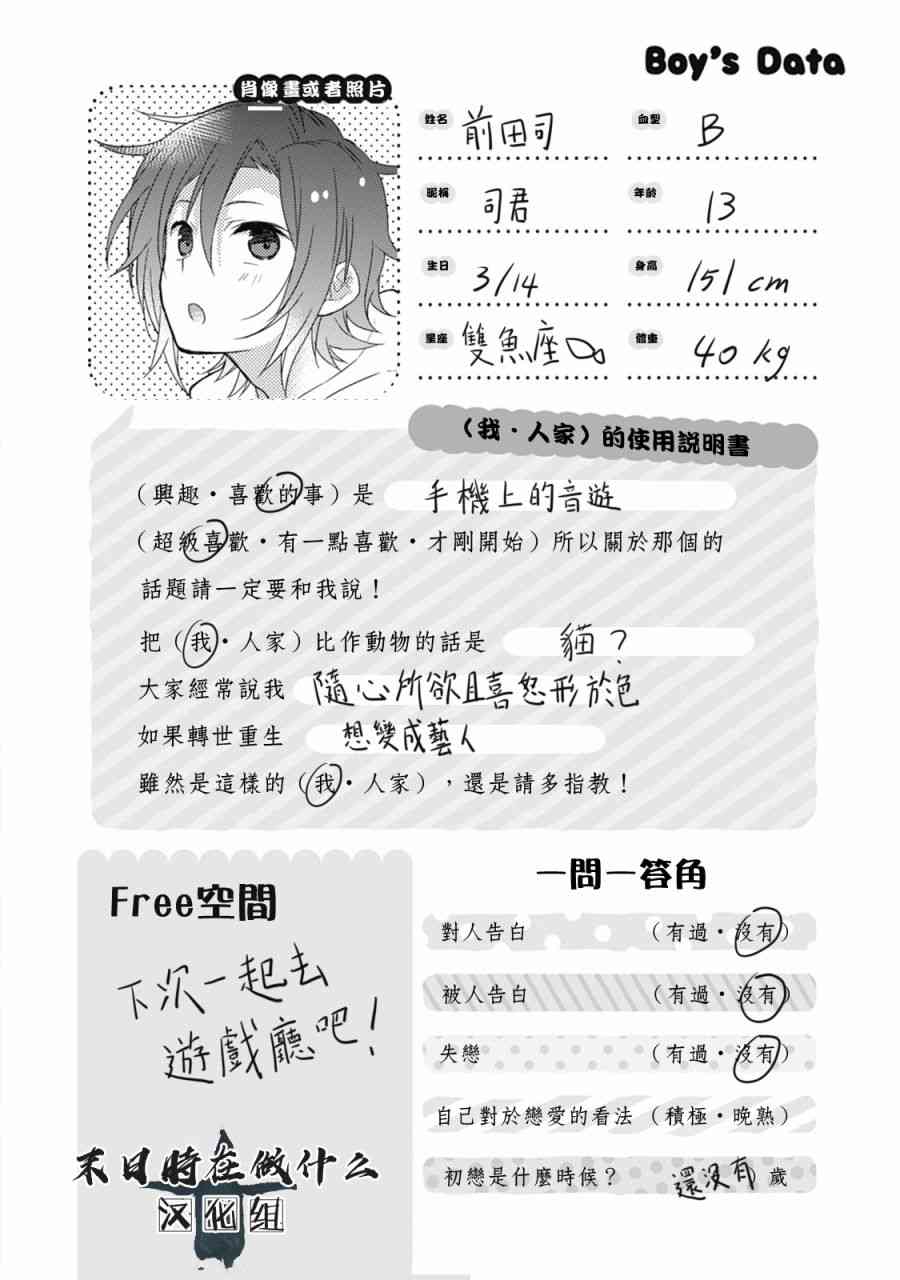 Boy's Data
肖像畫或者照片
姓名 前田司
血型 B
昵稱 司君
年齡 13
生日 3/14
身高 151 cm
星座 雙魚座
體重 40 kg
（我・人家）的使用説明書
（興趣・喜歡的事）是 手機上的音遊
（超級喜歡・有一點喜歡・才剛開始）所以關於那個的
話題請一定要和我說！
把（我・人家）比作動物的話是 貓？
大家經常說我 隨心所欲且喜怒形於色
如果轉世重生 想變成藝人
雖然是這樣的（我・人家），還是請多指教！
Free空間
下次一起去
遊戲廳吧！
末日時在做什么
汉化组
一問一答角
對人告白 （有過・沒有）
被人告白 （有過・沒有）
失戀 （有過・沒有）
自己對於戀愛的看法（積極・晚熟）
初戀是什麼時候？ 還沒有 歲